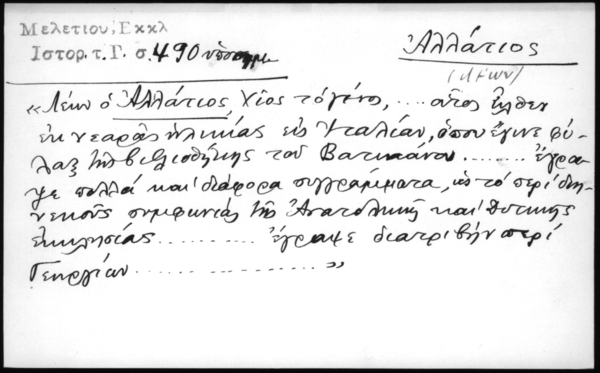 Μελετίου, Εκκλ
Ιστορ. τ. Γ. σ. 490 υποσημ
Ἀλλάτιος
(Λέων)
« Λέων ὁ Ἀλλάτιος, Χῖος τὸ γένος, .... οὗτος ἦλθεν
ἐκ νεαρᾶς ἡλικίας εἰς Ἰταλίαν, ὅπου ἔγινε φύ-
λαξ τῆς βιβλιοθήκης τοῦ Βατικάνου ........ ἔγρα-
ψε πολλὰ καὶ διάφορα συγγράμματα, ὡς τὸ περὶ διη-
νεκοῦς συμφωνίας τῆς Ἀνατολικῆς καὶ Δυτικῆς
ἐκκλησίας ........... ἔγραψε διατριβὴν περὶ
Γεωργίων .................... »